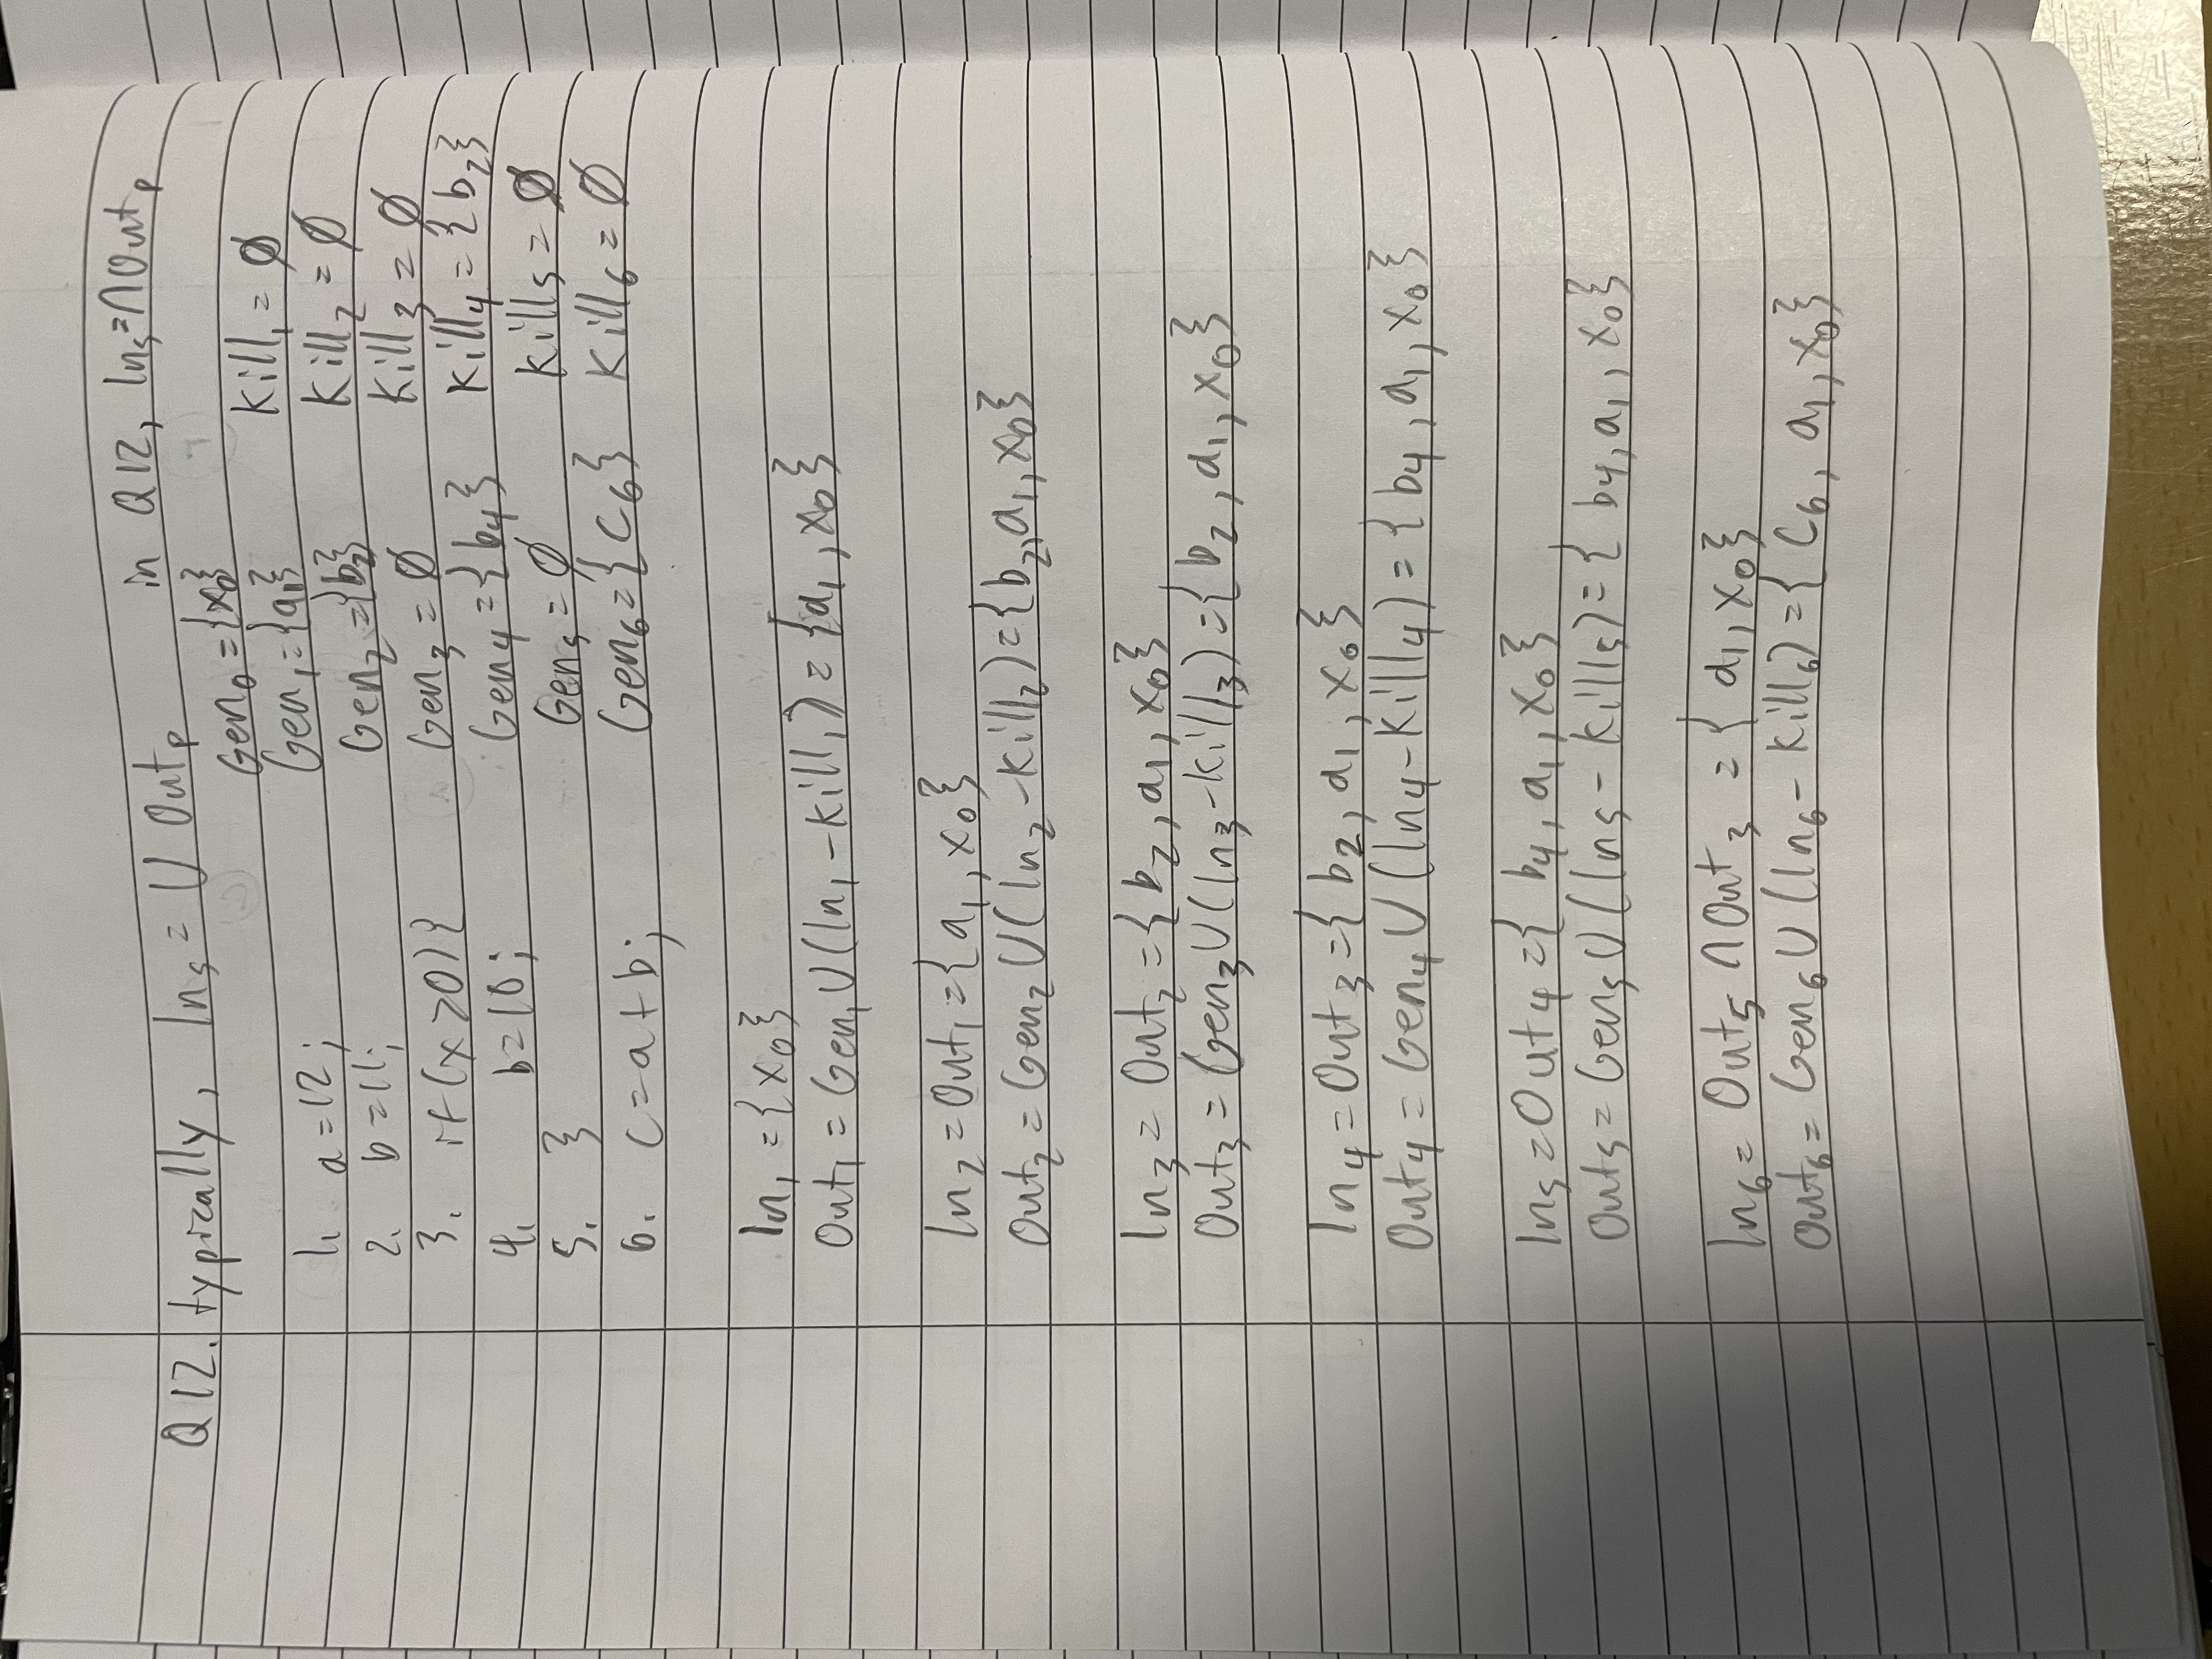 Q12. typically, Inₛ = ∪ Outₚ in Q12, Inₛ = ∩ Outₚ
Gen₀ = {x₀}
1. a = 12; Gen₁ = {a₁} Kill₁ = ∅
2. b = 11; Gen₂ = {b₂} Kill₂ = ∅
3. if (x > 0) { Gen₃ = ∅ Kill₃ = ∅
4. b = 10; Gen₄ = {b₄} Kill₄ = {b₂}
5. } Gen₅ = ∅ Kill₅ = ∅
6. c = a + b; Gen₆ = {C₆} Kill₆ = ∅
In₁ = {x₀}
Out₁ = Gen₁ ∪ (In₁ - Kill₁) = {a₁, x₀}
In₂ = Out₁ = {a₁, x₀}
Out₂ = Gen₂ ∪ (In₂ - Kill₂) = {b₂, a₁, x₀}
In₃ = Out₂ = {b₂, a₁, x₀}
Out₃ = Gen₃ ∪ (In₃ - Kill₃) = {b₂, a₁, x₀}
In₄ = Out₃ = {b₂, a₁, x₀}
Out₄ = Gen₄ ∪ (In₄ - Kill₄) = {b₄, a₁, x₀}
In₅ = Out₄ = {b₄, a₁, x₀}
Out₅ = Gen₅ ∪ (In₅ - Kill₅) = {b₄, a₁, x₀}
In₆ = Out₅ ∩ Out₃ = {a₁, x₀}
Out₆ = Gen₆ ∪ (In₆ - Kill₆) = {C₆, a₁, x₀}